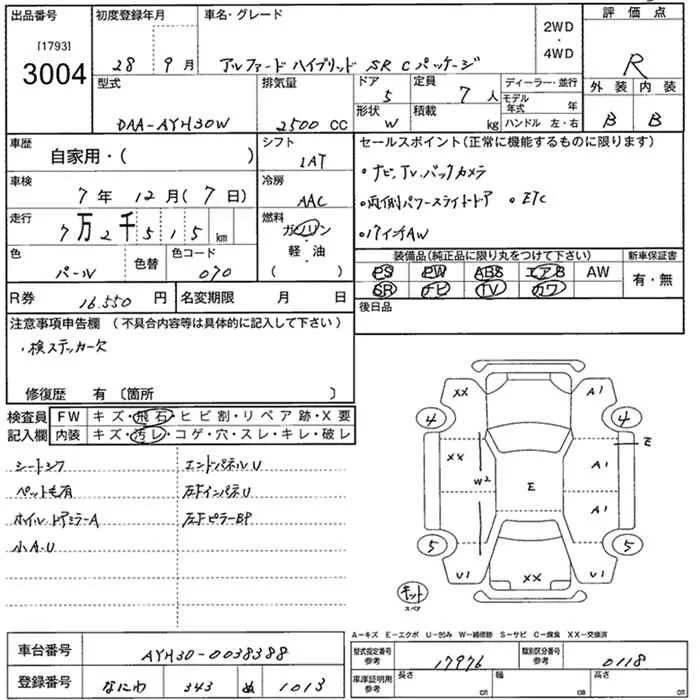 出品番号 初度登録年月 車名・グレード 評価点
[1793] 3004 28 9月 アルファード ハイブリッド SR Cパッケージ 2WD・4WD R
型式 排気量 ドア 5 定員 7人 ディーラー・並行 外装 内装
DAA-AYH30W 2500 CC 形状 W 積載 kg モデル年式 年 ハンドル 左・右 B B
車歴 自家用・( ) シフト 1AT セールスポイント(正常に機能するものに限ります)
・ナビ、TV、バックカメラ
車検 7年 12月(7日) 冷房 AAC
・両側パワースライドドア ・ETC
走行 7万2千515 km 燃料 ガソリン・軽油 ( )
・17インチAW
色 パール 色替 色コード 070
装備品(純正品に限り丸をつけて下さい) 新車保証書
PS PW ABS エアB AW 有・無
SR ナビ TV カワ
R券 16.550 円 名変期限 月 日 後日品
注意事項申告欄 (不具合内容等は具体的に記入して下さい)
・検ステッカー欠
修復歴 有 〔箇所 〕
検査員記入欄 FW キズ・飛石・ヒビ割・リペア跡・X要
内装 キズ・汚レ・コゲ・穴・スレ・キレ・破レ
シートシワ エンドパネルU
ペット毛有 左FインパネU
ホイル ドアミラーA 左FピラーBP
小A.U
XX A1
4 4
E
XX A1
W2 E
A1
5 5
U1 XX U1
キット
スペア
A-キズ E-エクボ U-凹み W-補修跡 S-サビ C-腐食 XX-交換済
車台番号 AYH30-0038388 型式指定番号 参考 17976 類別区分番号 参考 0118
登録番号 なにわ 343 ぬ 1013 車庫証明用 参考 長さ cm 幅 cm 高さ cm